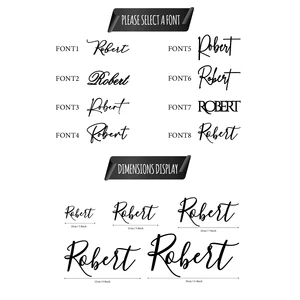 PLEASE SELECT A FONT
FONT1 Robert
FONT5 Robert
FONT2 Robert
FONT6 Robert
FONT3 Robert
FONT7 ROBERT
FONT4 Robert
FONT8 Robert
DIMENSIONS DISPLAY
Robert
Robert
Robert
Robert
Robert